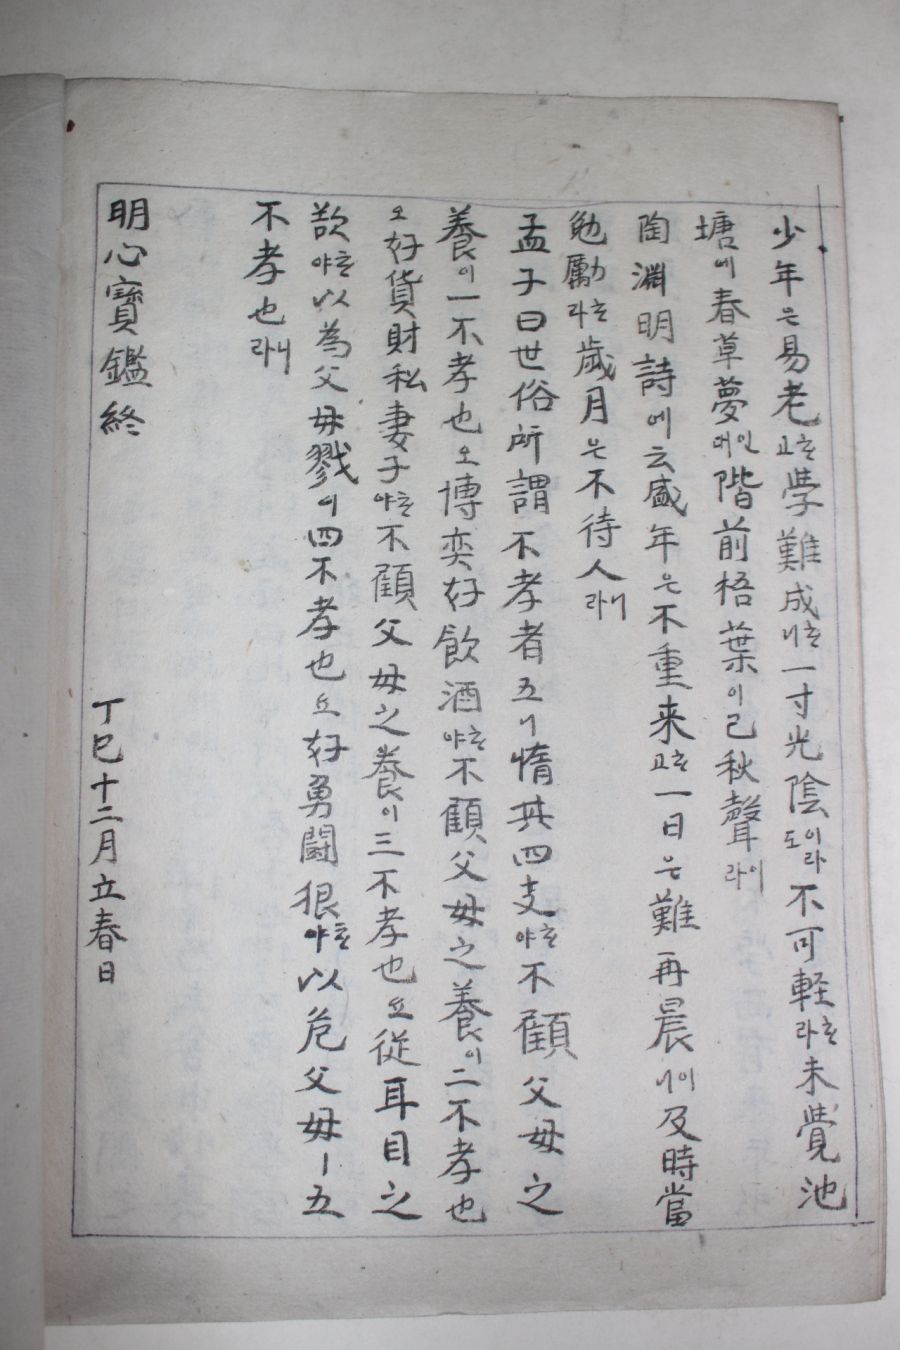 少年은易老고學難成이니一寸光陰이라도不可軽라未覺池
塘에春草夢에階前梧葉이已秋聲이라
陶淵明詩에云盛年은不重来고一日은難再晨이니及時當
勉勵라歲月은不待人라니
孟子曰世俗所謂不孝者五니惰其四支야不顧父母之
養이一不孝也오博奕好飮酒야不顧父母之養이二不孝也
오好貨財私妻子야不顧父母之養이三不孝也요從耳目之
欲야以為父母戮이四不孝也요好勇闘狠야以危父母ㅣ五
不孝也라니
明心寶鑑終
丁巳十二月立春日